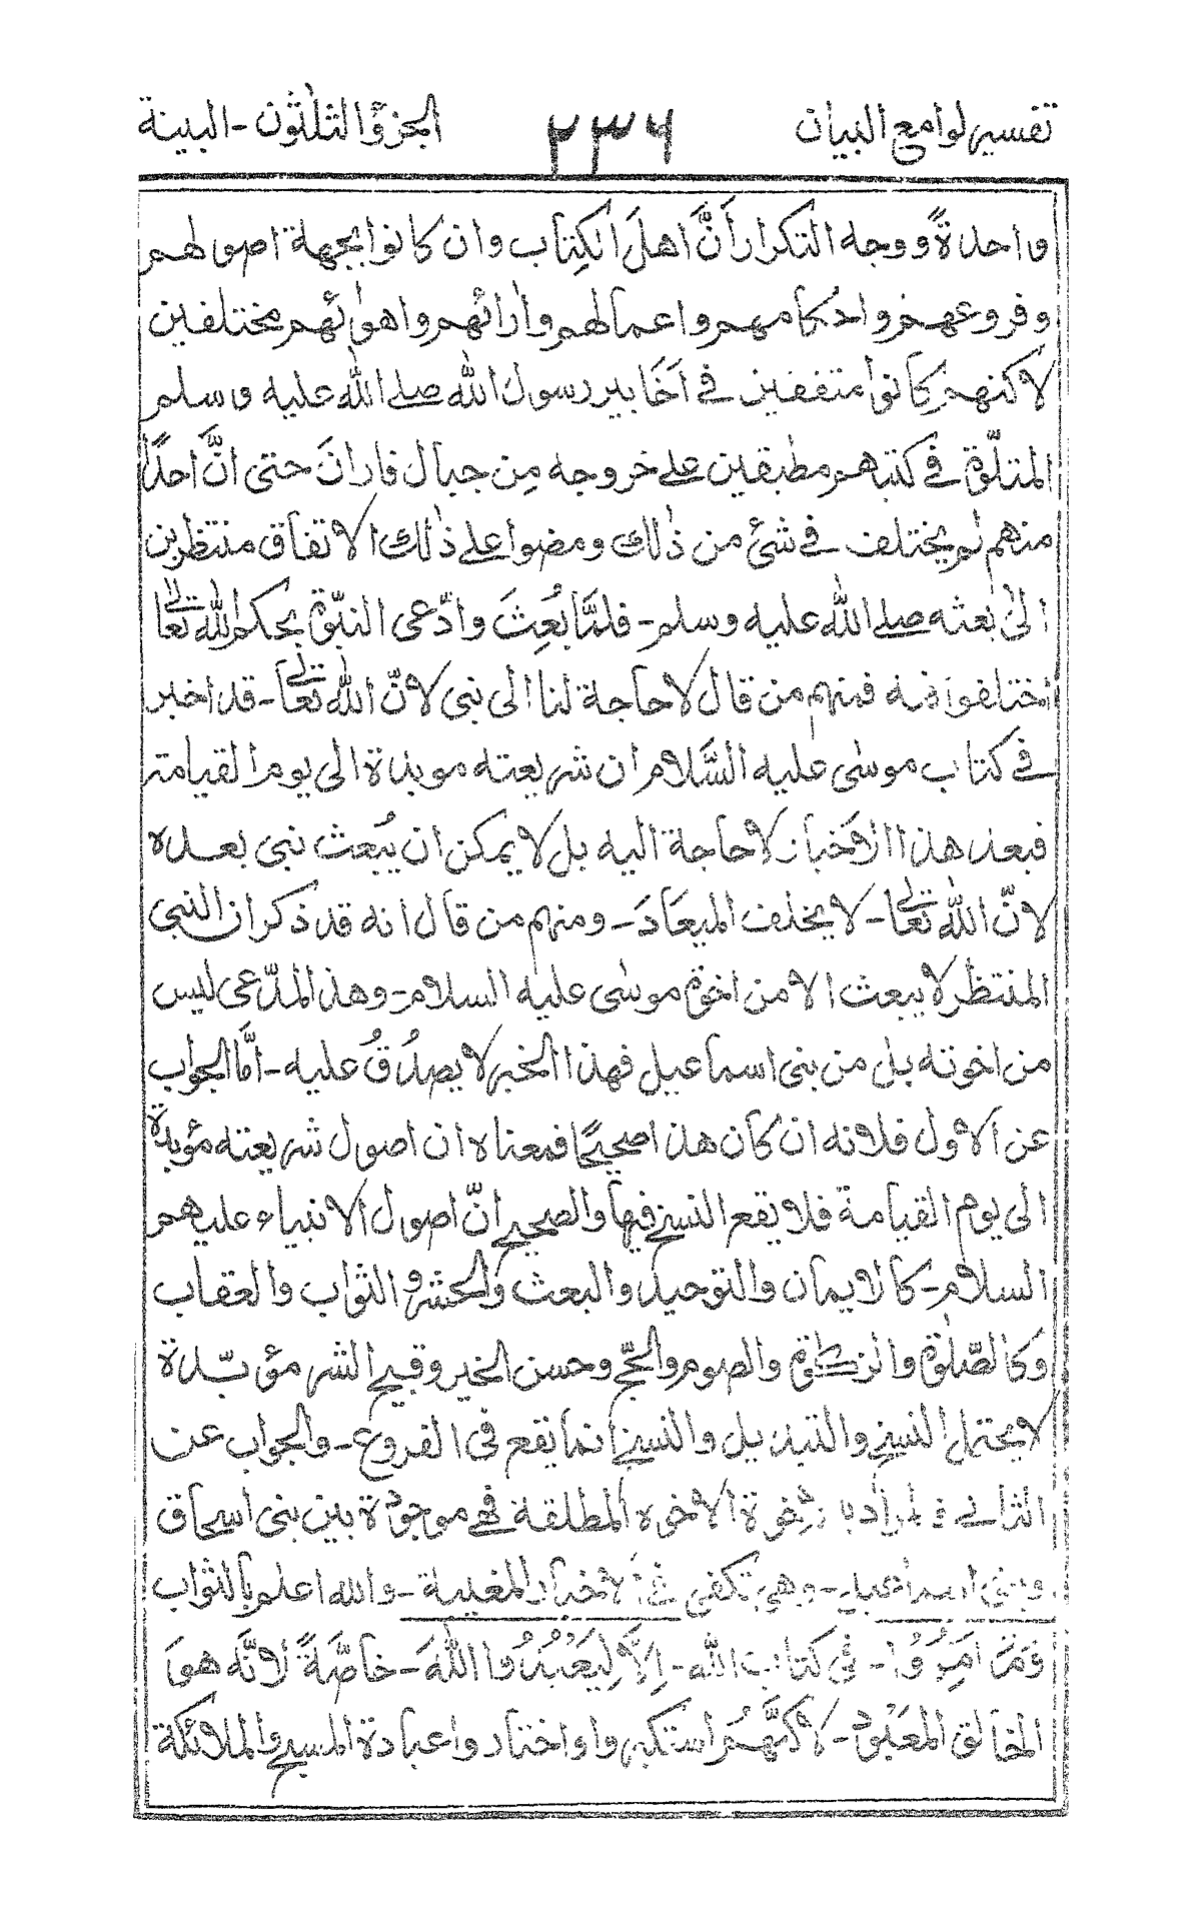 تفسير لوامع البيان ٢٣٦ الجزؤ الثلٰثون - البينة
واحدةً ووجه التكرار أنَّ اهلَ الكِتاب وان كانوا بجهة اصولهم
وفروعهم واحكامهم واعمالهم واٰرائهم واهوٰائهم مختلفين
لاكنهم كانوا متفقين فى اَخَابير رسول الله صلے الله عليه وسلم
المتلّوة فى كتبهم مطبقين علے خروجه مِن جبال فارانَ حتى انَّ احدًا
منهم لم يختلف فى شئ من ذٰلك ومضوا علے ذٰلك الاتفاق منتظرين
الىٰ بعثه صلے الله عليه وسلم - فلمَّا بُعِثَ وادّعى النبّوة بحكم الله تعالٰى
اختلفوا فيه فمنهم من قال لا حاجة لنا الى نبى لانّ الله تعالٰى - قد اخبر
فى كتاب موسٰى عليه السَّلام ان شريعته موبدة الى يوم القيامة
فبعد هذا الاخبار لا حاجة اليه بل لا يمكن ان يُبعث نبى بعده
لانّ الله تعالٰى - لا يخلف الميعَادَ - ومنهم من قال انه قد ذكر ان النبى
المنتظر لا يبعث الا من اخوة موسٰى عليه السلام - وهذا المدّعى ليس
من اخوته بل من بنى اسماعيل فهذا الخبر لا يصدُقُ عليه - امَّا الجواب
عن الاول فلانه ان كان هذا صحيحًا فمعناه ان اصول شريعته مؤبدة
الى يوم القيامة فلا يقع النسخ فيها والصحيح انّ اصول الانبياء عليهم
السلام - كالايمان والتوحيد والبعث والحشر و الثواب والعقاب
وكالصّلٰوة والزكٰوة والصوم والحجّ وحسن الخير وقبح الشر مؤبّدة
لا يحتمل النسخ والتبديل والنسخ انما يقع فى الفروع - والجواب عن
الثانى فالمراد بالاخوة الاخوه المطلقة فهى موجودة بين بنى اسحاق
وبنى اسماعيل - وهى تكفى فى الاخبار المغيبة - والله اعلم بالثواب
وَمَآ اُمِرُوْا - فى كتاب الله - اِلَّا لِيَعْبُدُوا اللهَ - خاصَّةً لانَّه هو
الخالق المعبُود - لاكنَّهُم استكبروا واختاروا عبادة المسيح والملائكة